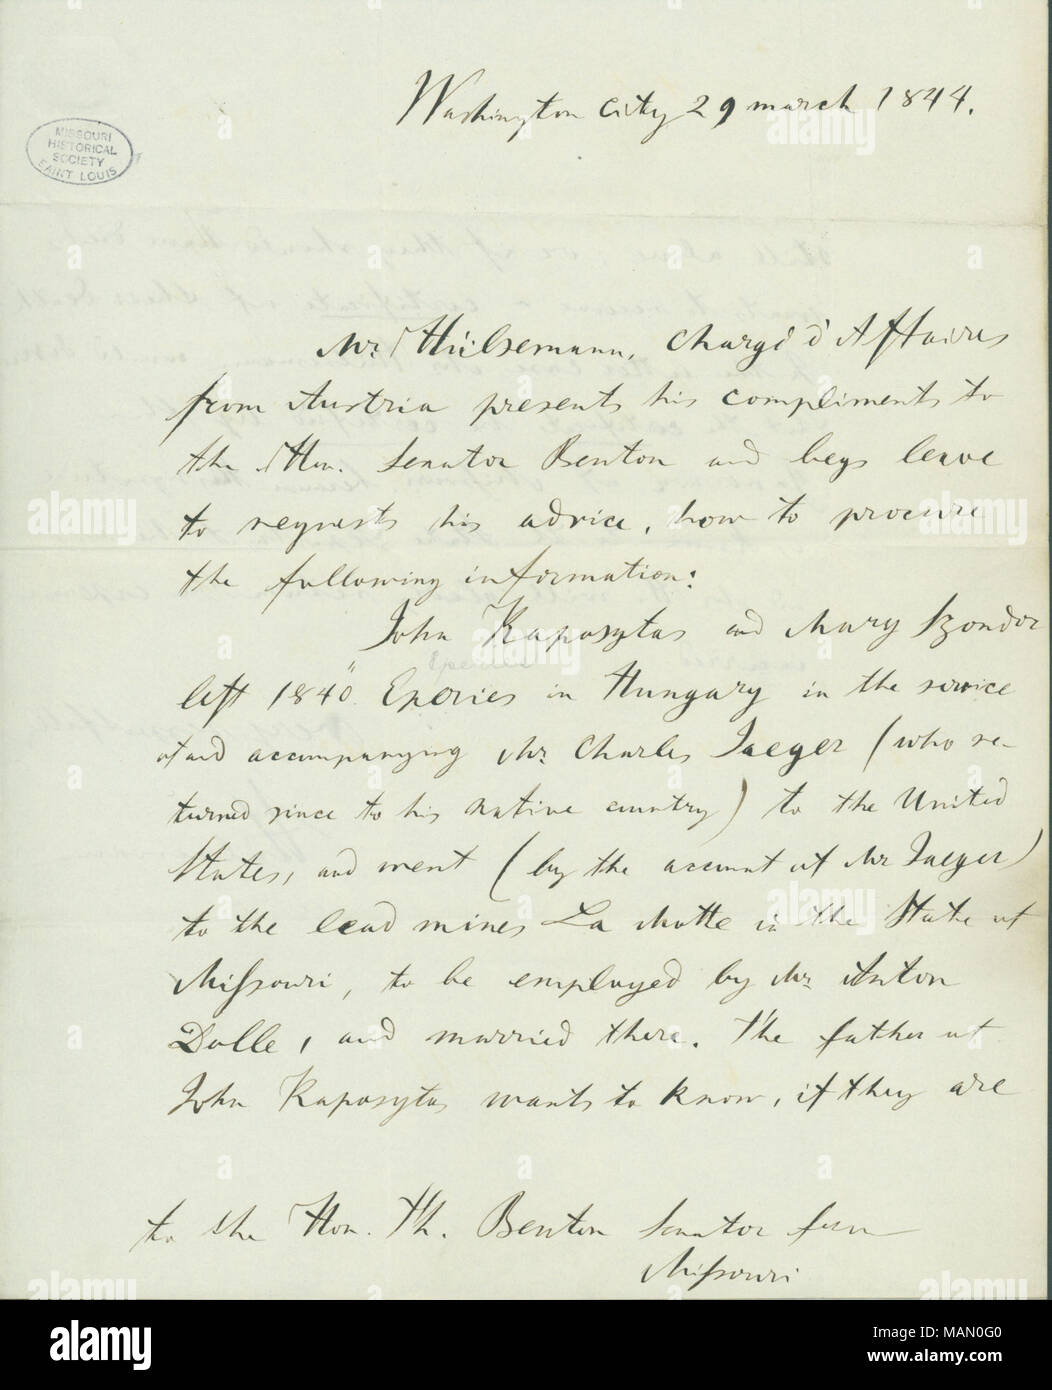 Washington City 29 march 1844.
MISSOURI
HISTORICAL
SOCIETY
SAINT LOUIS
Mr. Hülsemann, Chargé d'Affaires
from Austria presents his compliments to
the Hon. Senator Benton and begs leave
to request his advice, how to procure
the following information:
John Kaposytas and Mary Szondor
left 1840 Eperies in Hungary in the service
of and accompanying Mr. Charles Jaeger (who re-
turned since to his native country) to the United
States, and went (by the account of Mr Jaeger)
to the lead mines La Motte in the State of
Missouri, to be employed by Mr. Anton
Dolle, and married there. The father of
John Kaposytas wants to know, if they are
to the Hon. Th. Benton Senator from
Missouri
alamy
Image ID: MAN0G0
www.alamy.com